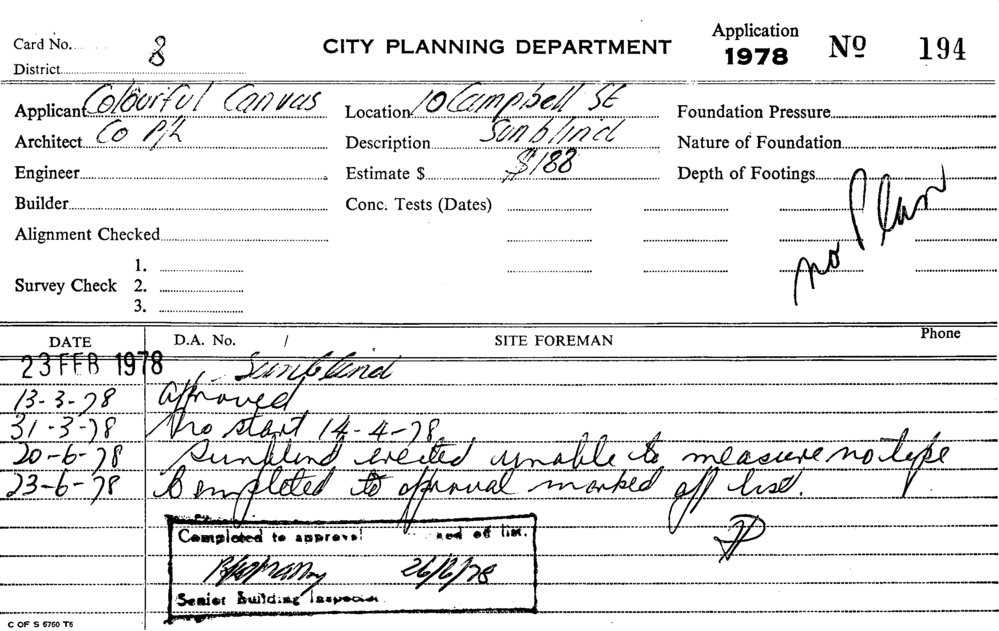 Card No. 8
CITY PLANNING DEPARTMENT
Application
1978 No 194
District
Applicant Colourful Canvas
Location 10 Campbell St
Foundation Pressure
Architect Co P/L
Description Sunblind
Nature of Foundation
Engineer
Estimate $ $188
Depth of Footings
Builder
Conc. Tests (Dates)
no Plan
Alignment Checked
Survey Check 1.
2.
3.
DATE D.A. No. / SITE FOREMAN Phone
23 FEB 1978 Sunblind
13-3-78 approved
31-3-78 No start 14-4-78
20-6-78 Sunblind erected unable to measure no tape
23-6-78 Completed to approval marked off list.
Completed to approval ked off list.
26/6/78
Senior Building Inspector
C OF S 6760 T6